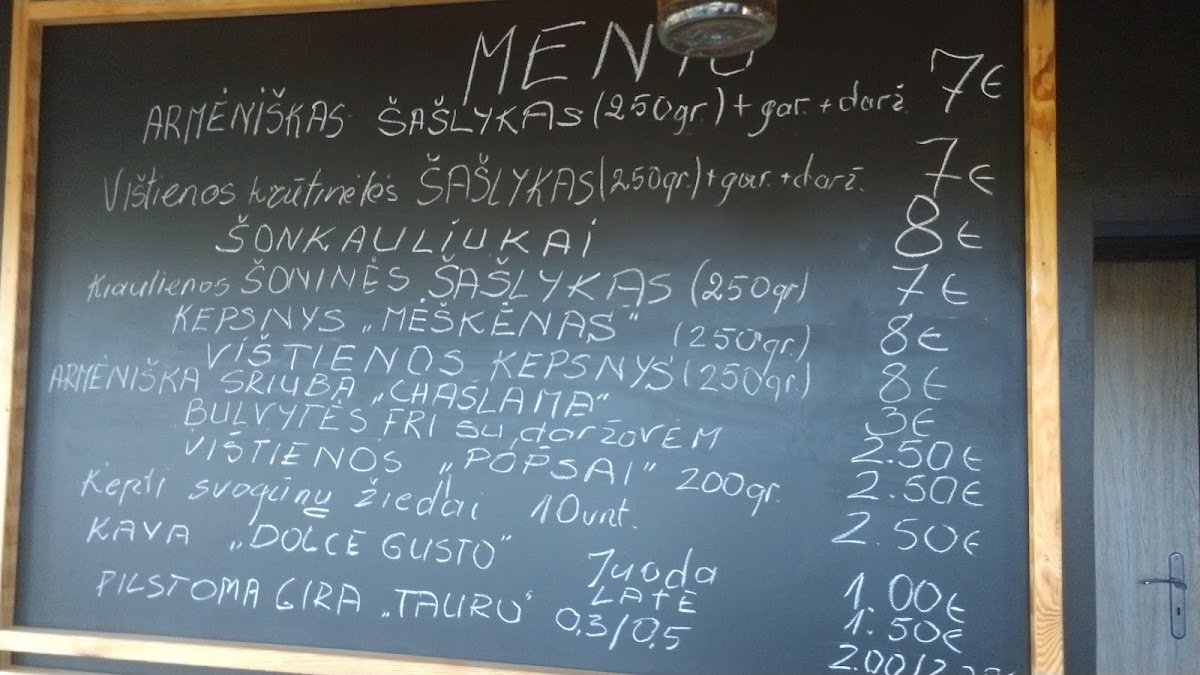 MENIU
ARMĖNIŠKAS ŠAŠLYKAS (250gr.) + gar. + darž. 7€
Vištienos krūtinėlės ŠAŠLYKAS (250gr.) + gar. + darž. 7€
ŠONKAULIUKAI 8€
Kiaulienos ŠONINĖS ŠAŠLYKAS (250gr) 7€
KEPSNYS „MĖŠKĖNAS" (250gr.) 8€
VIŠTIENOS KEPSNYS (250gr.) 8€
ARMĖNIŠKA SRIUBA „CHAŠLAMA" 3€
BULVYTĖS FRI su daržovėm 2.50€
VIŠTIENOS „POPSAI" 200gr. 2.50€
Kepti svogūnų žiedai 10vnt. 2.50€
KAVA „DOLCE GUSTO" Juoda 1.00€
LATE 1.50€
PILSTOMA GIRA „TAURU" 0,3/0,5 2.00/2